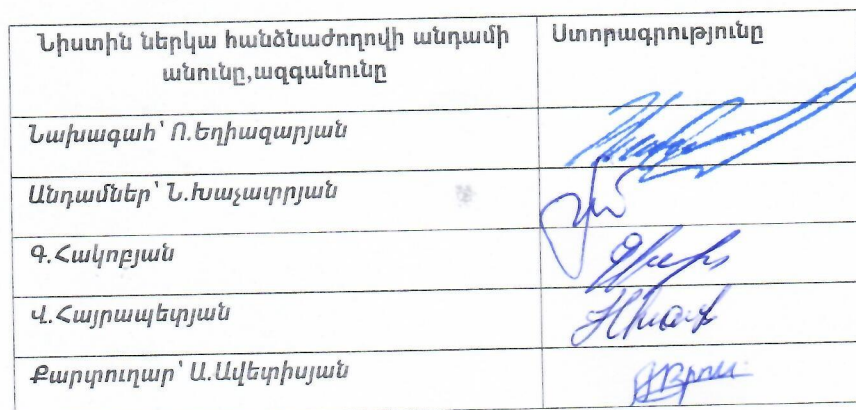 Նիստին ներկա հանձնաժողովի անդամի Ստորագրությունը
անունը,ազգանունը
Նախագահ՝ Ո.Եղիազարյան
Անդամներ՝ Ն.Խաչատրյան
Գ.Հակոբյան
Վ.Հայրապետյան
Քարտուղար՝ Ա.Ավետիսյան